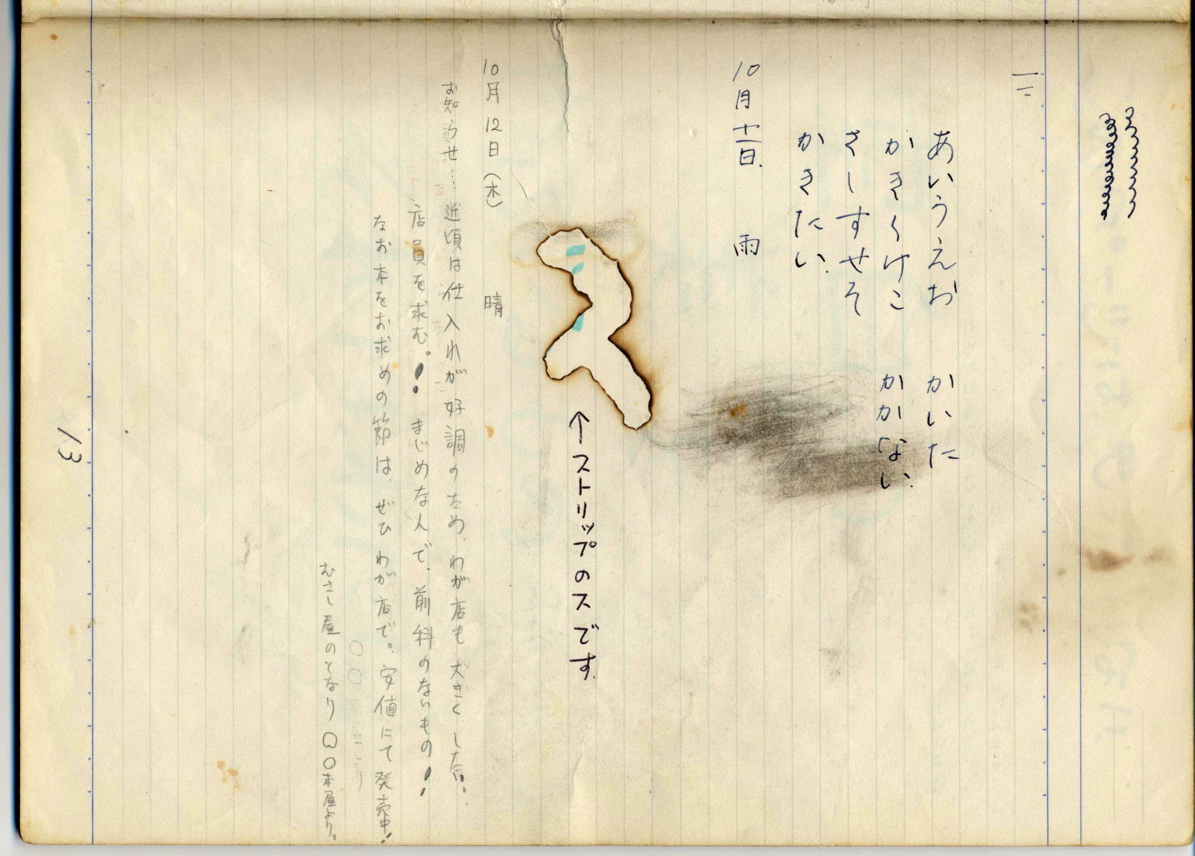 あいうえお　かいた
かきくけこ　かかない。
さしすせそ
かきたい。
10月十二日.　雨
↑ストリップのスです.
10月12日(木)　晴
お知らせ…近頃は仕入れが好調のため、わが店も大きくした。
店員を求む。! まじめな人で、前科のないもの!
なお本をお求めの節は、ぜひわが店で。安値にて発売中!
むさし屋のとなり 〇〇本屋より。
13